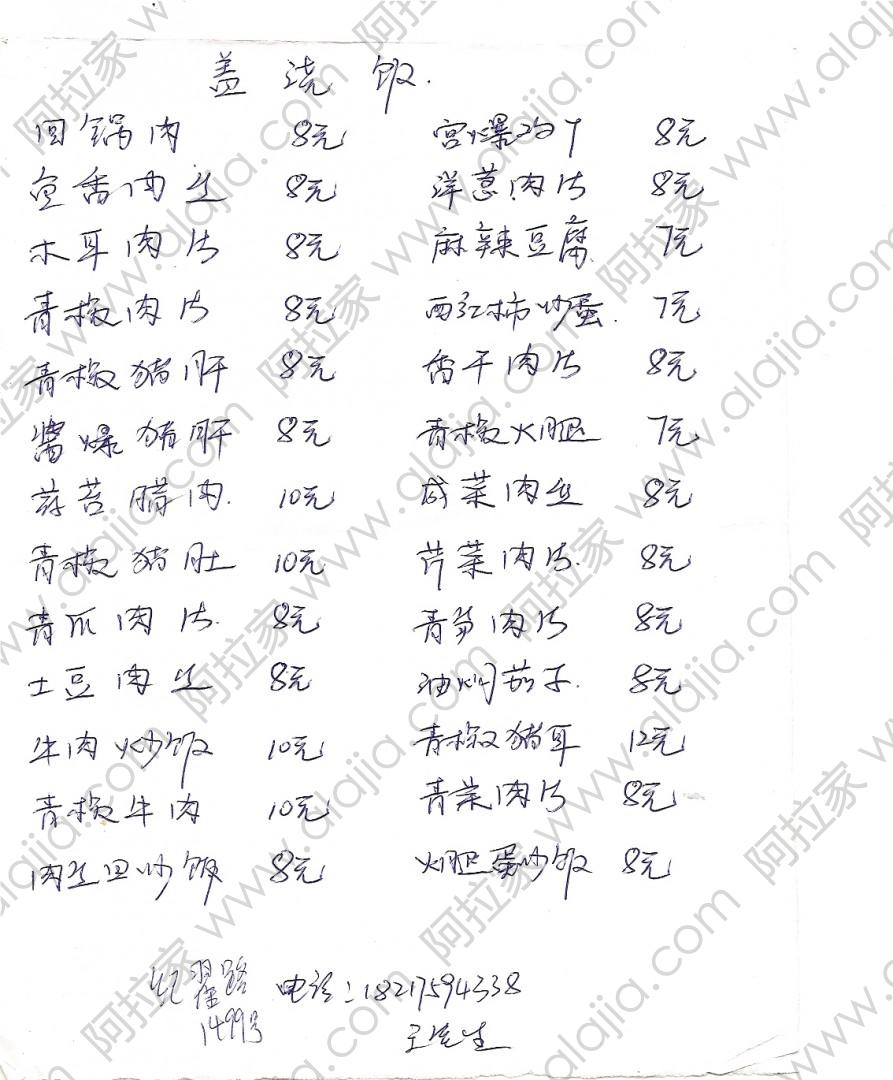 盖浇饭.
回锅肉 8元 宫爆鸡丁 8元
鱼香肉丝 8元 洋葱肉片 8元
木耳肉片 8元 麻辣豆腐. 7元
青椒肉片 8元 西红柿炒蛋. 7元
青椒猪肝 8元 香干肉片 8元
酱爆猪肝 8元 青椒火腿 7元
蒜苔腊肉. 10元 咸菜肉丝 8元
青椒猪肚 10元 芹菜肉片. 8元
青瓜肉片. 8元 青笋肉片 8元
土豆肉丝 8元 油焖茄子. 8元
牛肉炒饭 10元 青椒猪耳 12元
青椒牛肉 10元 青菜肉片 8元
肉丝旦炒饭 8元 火腿蛋炒饭 8元
纪翟路 电话:18217594338
1499号 王先生
阿拉家 www.alajia.com